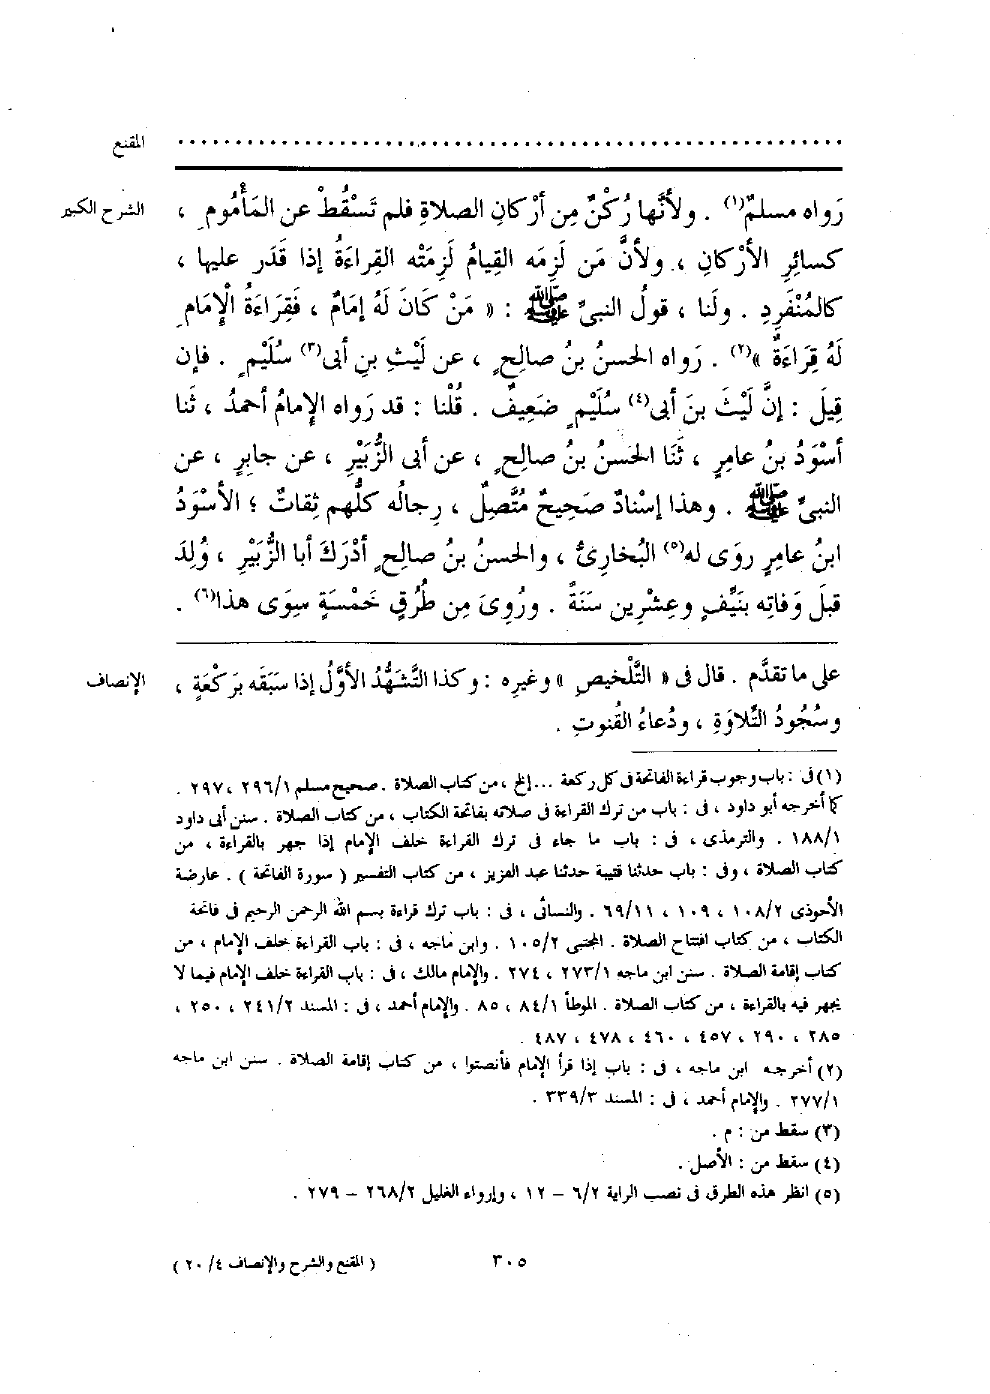 المقنع ........................................
الشرح الكبير
رَواه مسلمٌ(١) . ولأنَّها رُكْنٌ مِن أرْكانِ الصلاةِ فلم تَسْقُطْ عن المَأْمُومِ ،
كسائِرِ الأرْكانِ ، ولأنَّ مَن لَزِمَه القِيامُ لَزِمَتْه القِراءَةُ إذا قَدَر عليها ،
كالمُنْفَرِدِ . ولَنا ، قولُ النبىِّ ﷺ : « مَنْ كَانَ لَهُ إمَامٌ ، فَقِرَاءَةُ الْإمَامِ
لَهُ قِرَاءَةٌ »(٢) . رَواه الحسنُ بنُ صالحٍ ، عن لَيْثِ بنِ أبى(٣) سُلَيْمٍ . فإن
قِيلَ : إنَّ لَيْثَ بنَ أبى(٤) سُلَيْمٍ ضَعِيفٌ . قُلْنا : قد رَواه الإِمامُ أحمدُ ، ثَنا
أسْوَدُ بنُ عامِرٍ ، ثَنَا الحَسَنُ بنُ صالحٍ ، عن أبى الزُّبَيْرِ ، عن جابِرٍ ، عن
النبىِّ ﷺ . وهذا إسْنادٌ صَحِيحٌ مُتَّصِلٌ ، رِجالُه كلُّهم ثِقاتٌ ؛ الأسْوَدُ
ابنُ عامِرٍ روَى له(٥) البُخارِىُّ ، والحسنُ بنُ صالحٍ أدْرَكَ أبا الزُّبَيْرِ ، وُلِدَ
قبلَ وَفاتِه بنَيِّفٍ وعِشْرِين سَنَةً . ورُوِىَ مِن طُرُقٍ خَمْسَةٍ سِوَى هذا(٦) .
الإنصاف
على ما تقدَّم . قال فى « التَّلْخيصِ » وغيرِه : وكذا التَّشَهُّدُ الأوَّلُ إذا سَبَقَه بِرَكْعَةٍ ،
وسُجُودُ التِّلاوَةِ ، ودُعاءُ القُنوتِ .
(١) فى : باب وجوب قراءة الفاتحة فى كل ركعة ... إلخ ، من كتاب الصلاة . صحيح مسلم ٢٩٦/١ ، ٢٩٧ .
كما أخرجه أبو داود ، فى : باب من ترك القراءة فى صلاته بفاتحة الكتاب ، من كتاب الصلاة . سنن أبى داود
١٨٨/١ . والترمذى ، فى : باب ما جاء فى ترك القراءة خلف الإمام إذا جهر بالقراءة ، من
كتاب الصلاة ، وفى : باب حدثنا قتيبة حدثنا عبد العزيز ، من كتاب التفسير ( سورة الفاتحة ) . عارضة
الأحوذى ١٠٨/٢ ، ١٠٩ ، ٦٩/١١ . والنسائى ، فى : باب ترك قراءة بسم الله الرحمن الرحيم فى فاتحة
الكتاب ، من كتاب افتتاح الصلاة . المجتبى ١٠٥/٢ . وابن ماجه ، فى : باب القراءة خلف الإمام ، من
كتاب إقامة الصلاة . سنن ابن ماجه ٢٧٣/١ ، ٢٧٤ . والإمام مالك ، فى : باب القراءة خلف الإمام فيما لا
يجهر فيه بالقراءة ، من كتاب الصلاة . الموطأ ٨٤/١ ، ٨٥ . والإمام أحمد ، فى : المسند ٢٤١/٢ ، ٢٥٠ ،
٢٨٥ ، ٢٩٠ ، ٤٥٧ ، ٤٦٠ ، ٤٧٨ ، ٤٨٧ .
(٢) أخرجه ابن ماجه ، فى : باب إذا قرأ الإمام فأنصتوا ، من كتاب إقامة الصلاة . سنن ابن ماجه
٢٧٧/١ . والإمام أحمد ، فى : المسند ٣٣٩/٣ .
(٣) سقط من : م .
(٤) سقط من : الأصل .
(٥) انظر هذه الطرق فى نصب الراية ٦/٢ – ١٢ ، وإرواء الغليل ٢٦٨/٢ – ٢٧٩ .
٣٠٥
( المقنع والشرح والإنصاف ٢٠/٤ )